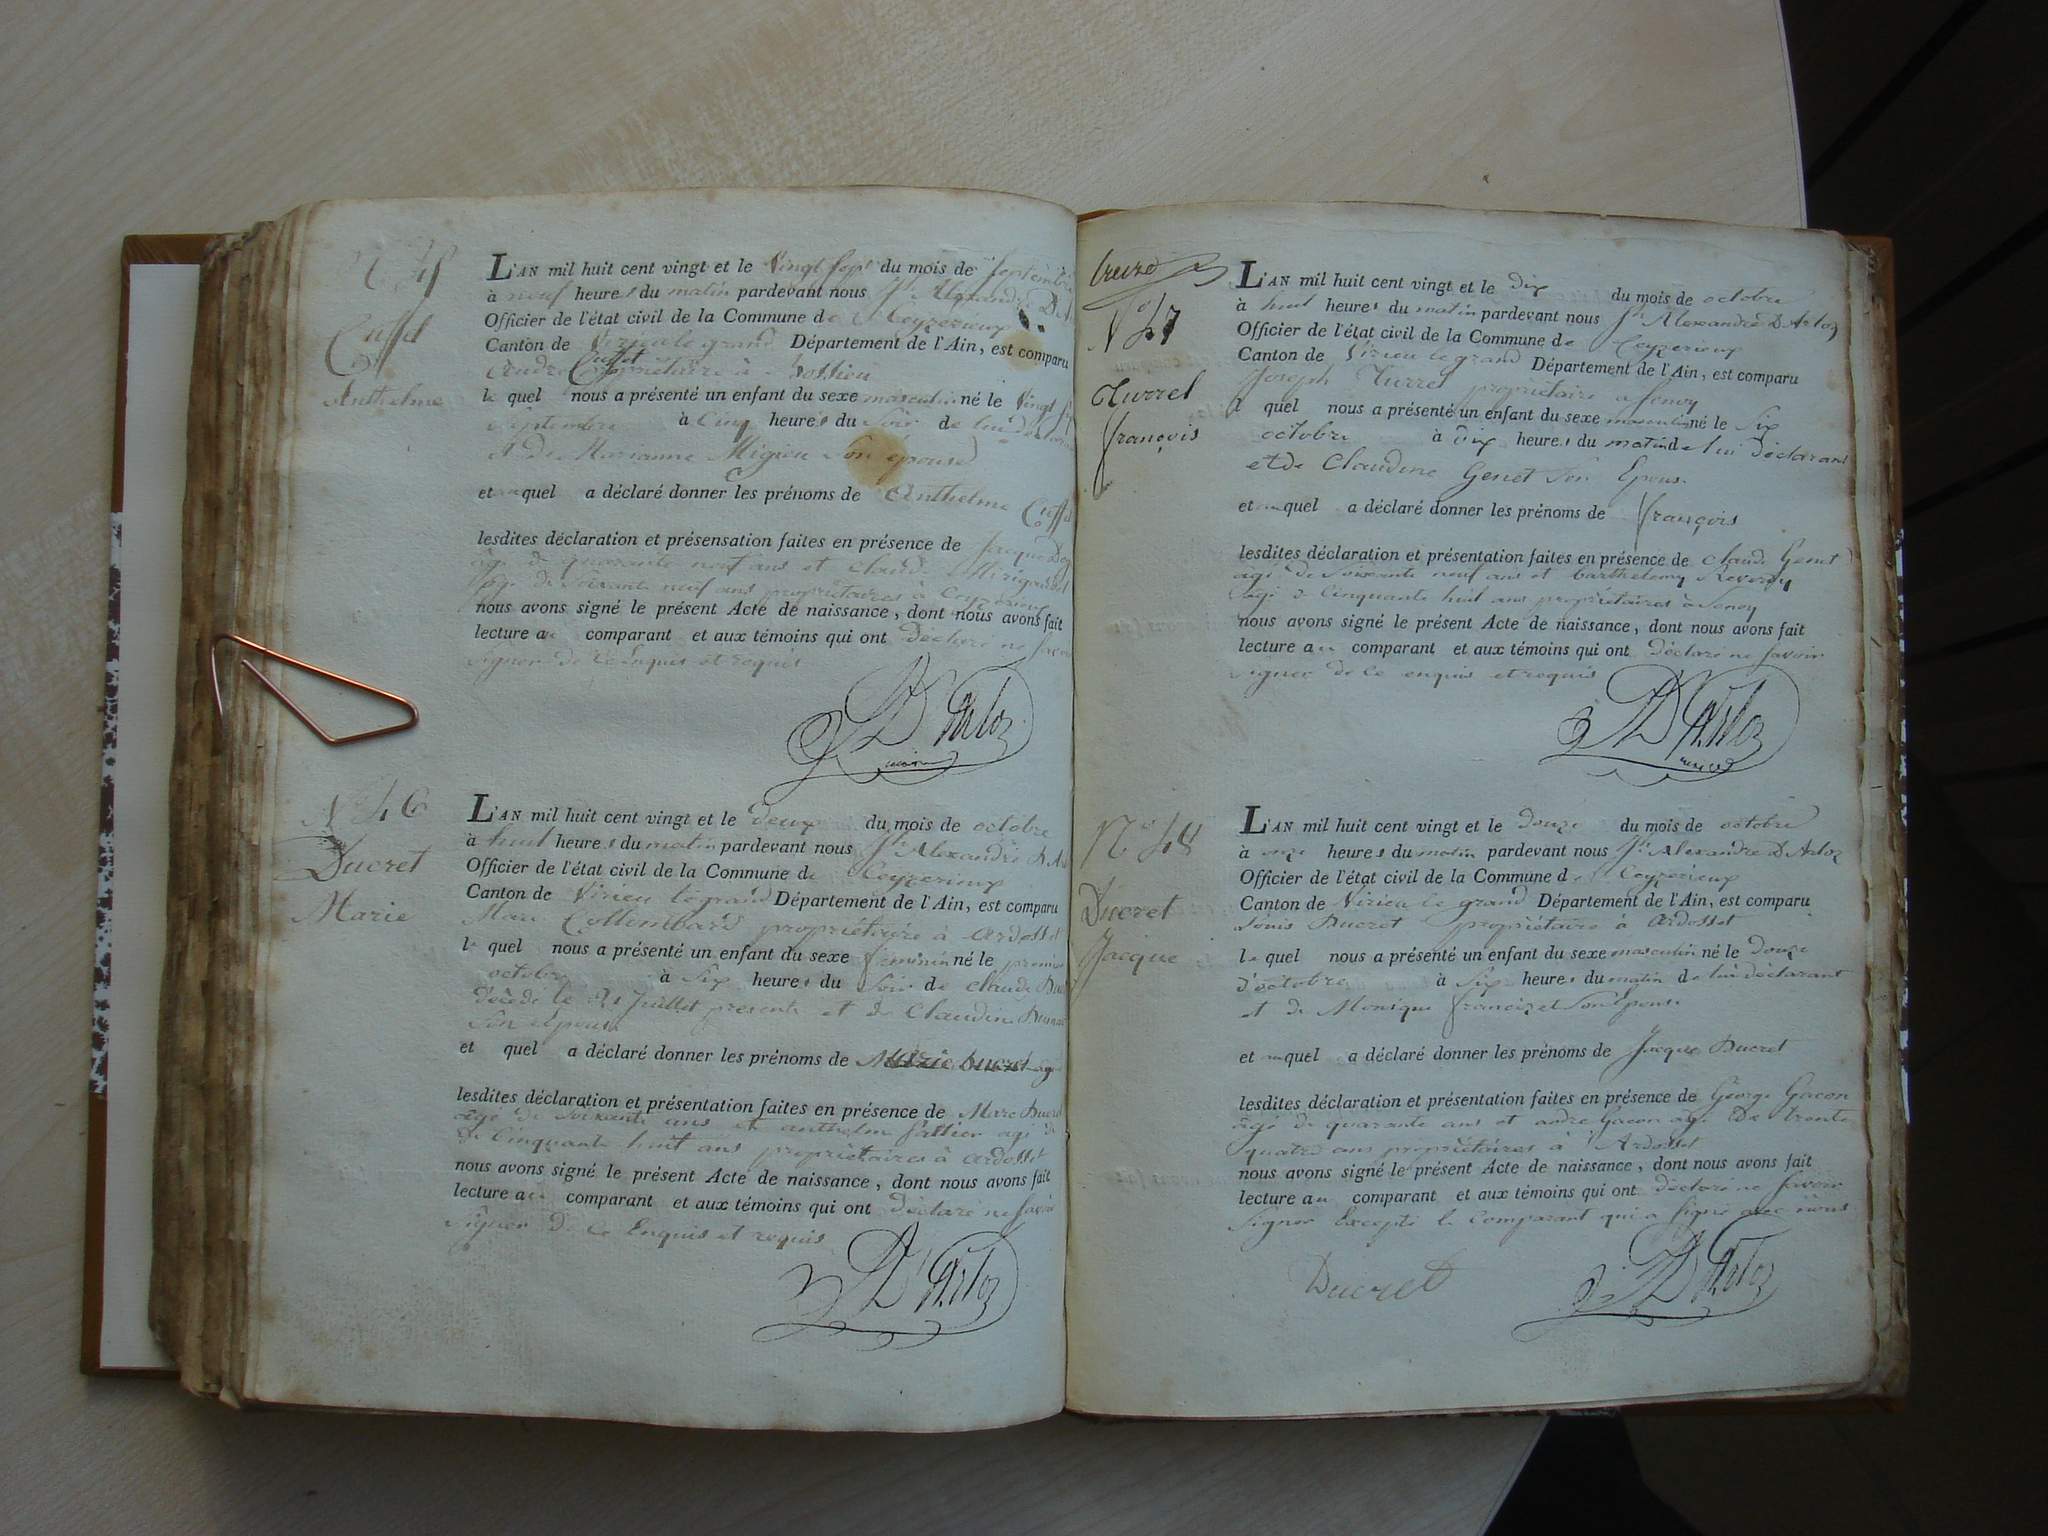 N° 45
Cusset
Anthelme
L'AN mil huit cent vingt et le Vingt Sept du mois de Septembre
à neuf heures du matin pardevant nous Jh Alexandre D
Officier de l'état civil de la Commune de Ceyzerieux
Canton de Virieu le grand Département de l'Ain, est comparu
Cusset
André propriétaire à
le quel nous a présenté un enfant du sexe masculin né le Vingt
Septembre à Cinq heures du Soir de lui
et de Marianne Migieu Son épouse
et quel a déclaré donner les prénoms de Anthelme
lesdites déclaration et présensation faites en présence de Jacque
âgé de quarante neuf ans et claude
âgé de Soixante neuf ans propriétaires à Ceyzerieux
nous avons signé le présent Acte de naissance, dont nous avons fait
lecture au comparant et aux témoins qui ont déclaré ne savoir
Signer de ce Enquis et requis
D'Arloz
N° 46
Ducret
Marie
L'AN mil huit cent vingt et le deux du mois de octobre
à huit heures du matin pardevant nous Jh Alexandre D. A
Officier de l'état civil de la Commune de Ceyzerieux
Canton de Virieu le grand Département de l'Ain, est comparu
Marc Collembard propriétaire à Ardosset
le quel nous a présenté un enfant du sexe feminin né le premier
octobre à Six heures du Soir de claude
décédé le 21 Juillet presente et de Claudine
Son épouse
et quel a déclaré donner les prénoms de Marie Ducret
lesdites déclaration et présentation faites en présence de Marc Ducret
âgé de Soixante ans et anthelme fallier agé
de Cinquante huit ans proprietaires à Ardosset
nous avons signé le présent Acte de naissance, dont nous avons fait
lecture au comparant et aux témoins qui ont déclaré ne savoir
Signer de ce Enquis et requis
D'Arloz
N° 47
Turrel
françois
L'AN mil huit cent vingt et le dix du mois de octobre
à huit heures du matin pardevant nous Jh Alexandre D Arloz
Officier de l'état civil de la Commune de Ceyzerieux
Canton de Virieu le grand Département de l'Ain, est comparu
Joseph Turrel propriétaire a Senoy
le quel nous a présenté un enfant du sexe masculin né le Six
octobre à dix heures du matin de lui déclarant
et de Claudine Genet Son Epouse
et quel a déclaré donner les prénoms de françois
lesdites déclaration et présentation faites en présence de Claude Genet
âgé de Soixante neuf ans et barthelemy Reverdy
âgé de Cinquante huit ans propriétaires à Senoy
nous avons signé le présent Acte de naissance, dont nous avons fait
lecture au comparant et aux témoins qui ont déclaré ne savoir
signer de ce enquis et requis
D'Arloz
N° 48
Ducret
Jacque
L'AN mil huit cent vingt et le douze du mois de octobre
à onze heures du matin pardevant nous Jh Alexandre D Arloz
Officier de l'état civil de la Commune de Ceyzerieux
Canton de Virieu le grand Département de l'Ain, est comparu
Louis Ducret propriétaire à Ardosset
le quel nous a présenté un enfant du sexe masculin né le Douze
d'octobre à Six heures du matin de lui déclarant
et de Monique Son Epouse
et quel a déclaré donner les prénoms de Jacque Ducret
lesdites déclaration et présentation faites en présence de George Gacon
âgé de quarante ans et andre Gacon agé De trente
quatre ans propriétaires à Ardosset
nous avons signé le présent Acte de naissance, dont nous avons fait
lecture au comparant et aux témoins qui ont déclaré ne savoir
Signer Excepté le Comparant qui a Signé avec nous
Ducret
D'Arloz